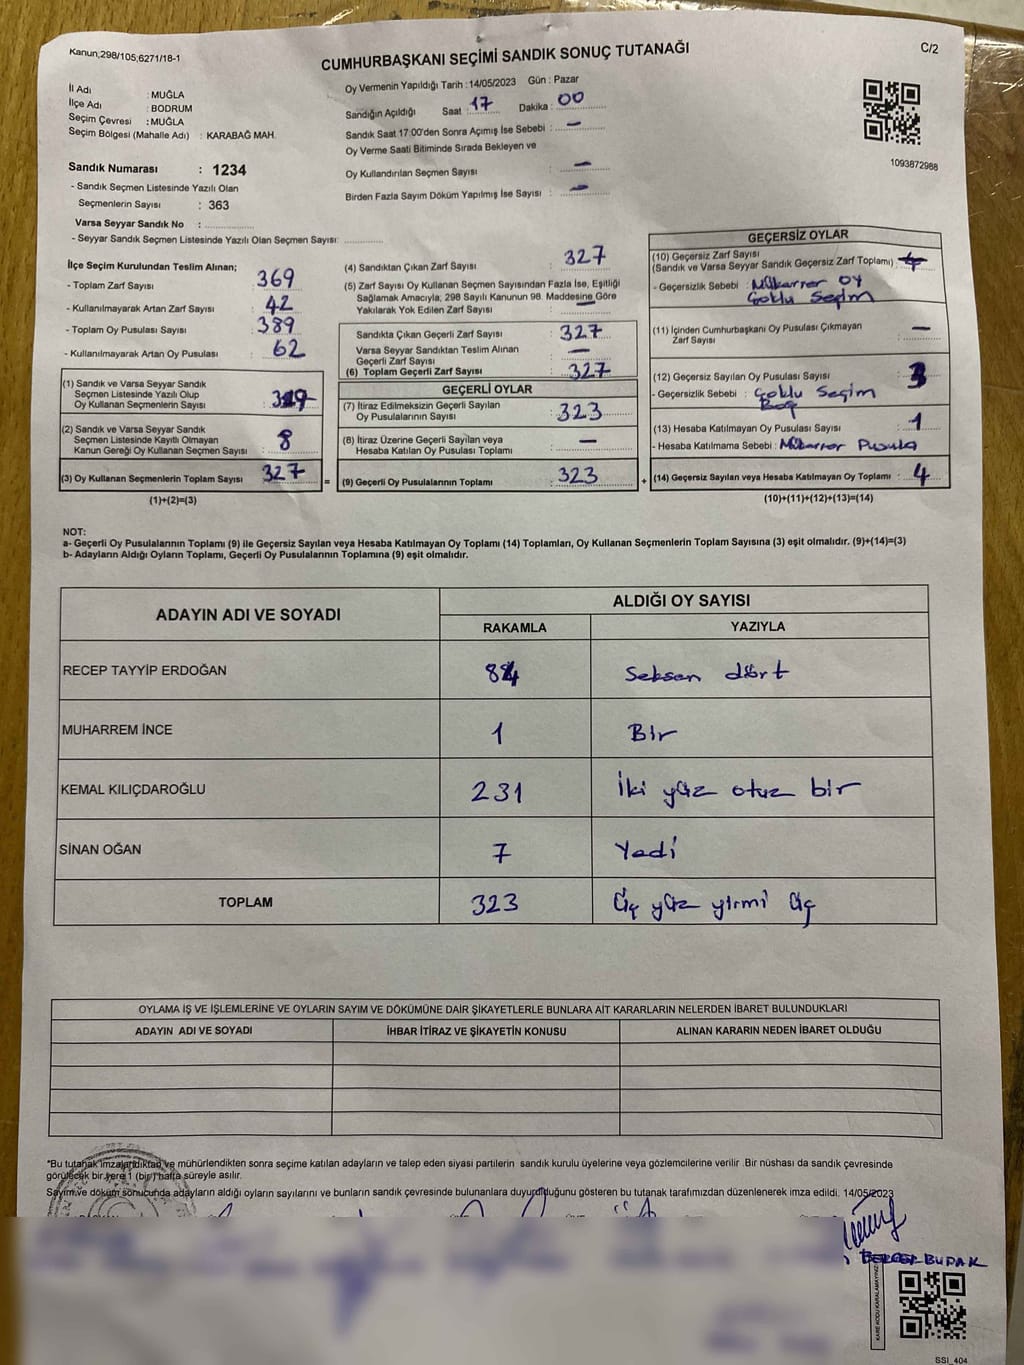 Kanun,298/105;6271/18-1
CUMHURBAŞKANI SEÇİMİ SANDIK SONUÇ TUTANAĞI
C/2
İl Adı : MUĞLA
İlçe Adı : BODRUM
Seçim Çevresi : MUĞLA
Seçim Bölgesi (Mahalle Adı) : KARABAĞ MAH.
Oy Vermenin Yapıldığı Tarih :14/05/2023 Gün : Pazar
Sandığın Açıldığı Saat 17 Dakika : 00
Sandık Saat 17:00'den Sonra Açımış İse Sebebi : —
Oy Verme Saati Bitiminde Sırada Bekleyen ve
Oy Kullandırılan Seçmen Sayısı —
Birden Fazla Sayım Döküm Yapılmış İse Sayısı : —
1093872988
Sandık Numarası : 1234
- Sandık Seçmen Listesinde Yazılı Olan
Seçmenlerin Sayısı : 363
Varsa Seyyar Sandık No :
- Seyyar Sandık Seçmen Listesinde Yazılı Olan Seçmen Sayısı:
İlçe Seçim Kurulundan Teslim Alınan;
- Toplam Zarf Sayısı : 369
- Kullanılmayarak Artan Zarf Sayısı : 42
- Toplam Oy Pusulası Sayısı : 389
- Kullanılmayarak Artan Oy Pusulası : 62
(1) Sandık ve Varsa Seyyar Sandık
Seçmen Listesinde Yazılı Olup
Oy Kullanan Seçmenlerin Sayısı : 319
(2) Sandık ve Varsa Seyyar Sandık
Seçmen Listesinde Kayıtlı Olmayan
Kanun Gereği Oy Kullanan Seçmen Sayısı : 8
(3) Oy Kullanan Seçmenlerin Toplam Sayısı : 327
(1)+(2)=(3)
(4) Sandıktan Çıkan Zarf Sayısı : 327
(5) Zarf Sayısı Oy Kullanan Seçmen Sayısından Fazla İse, Eşitliği
Sağlamak Amacıyla; 298 Sayılı Kanunun 98. Maddesine Göre
Yakılarak Yok Edilen Zarf Sayısı : —
Sandıkta Çıkan Geçerli Zarf Sayısı : 327
Varsa Seyyar Sandıktan Teslim Alınan
Geçerli Zarf Sayısı : —
(6) Toplam Geçerli Zarf Sayısı : 327
GEÇERLİ OYLAR
(7) İtiraz Edilmeksizin Geçerli Sayılan
Oy Pusulalarının Sayısı : 323
(8) İtiraz Üzerine Geçerli Sayılan veya
Hesaba Katılan Oy Pusulaları Toplamı : —
= (9) Geçerli Oy Pusulalarının Toplamı : 323 +
GEÇERSİZ OYLAR
(10) Geçersiz Zarf Sayısı
(Sandık ve Varsa Seyyar Sandık Geçersiz Zarf Toplamı) :
- Geçersizlik Sebebi : Mükerrer oy
Çoklu Seçim
(11) İçinden Cumhurbaşkanı Oy Pusulası Çıkmayan
Zarf Sayısı : —
(12) Geçersiz Sayılan Oy Pusulası Sayısı : 3
- Geçersizlik Sebebi : Çoklu Seçim
Boş
(13) Hesaba Katılmayan Oy Pusulası Sayısı : 1
- Hesaba Katılmama Sebebi : Mükerrer Pusula
(14) Geçersiz Sayılan veya Hesaba Katılmayan Oy Toplamı : 4
(10)+(11)+(12)+(13)=(14)
NOT:
a- Geçerli Oy Pusulalarının Toplamı (9) ile Geçersiz Sayılan veya Hesaba Katılmayan Oy Toplamı (14) Toplamları, Oy Kullanan Seçmenlerin Toplam Sayısına (3) eşit olmalıdır. (9)+(14)=(3)
b- Adayların Aldığı Oyların Toplamı, Geçerli Oy Pusulalarının Toplamına (9) eşit olmalıdır.
ADAYIN ADI VE SOYADI
ALDIĞI OY SAYISI
RAKAMLA YAZIYLA
RECEP TAYYİP ERDOĞAN 84 Seksen dört
MUHARREM İNCE 1 Bir
KEMAL KILIÇDAROĞLU 231 İki yüz otuz bir
SİNAN OĞAN 7 Yedi
TOPLAM 323 Üç yüz yirmi üç
OYLAMA İŞ VE İŞLEMLERİNE VE OYLARIN SAYIM VE DÖKÜMÜNE DAİR ŞİKAYETLERLE BUNLARA AİT KARARLARIN NELERDEN İBARET BULUNDUKLARI
ADAYIN ADI VE SOYADI İHBAR İTİRAZ VE ŞİKAYETİN KONUSU ALINAN KARARIN NEDEN İBARET OLDUĞU
*Bu tutanak imzalandıktan ve mühürlendikten sonra seçime katılan adayların ve talep eden siyasi partilerin sandık kurulu üyelerine veya gözlemcilerine verilir .Bir nüshası da sandık çevresinde
görülecek bir yere 1 (bir) hafta süreyle asılır.
Sayım ve döküm sonucunda adayların aldığı oyların sayılarını ve bunların sandık çevresinde bulunanlara duyurulduğunu gösteren bu tutanak tarafımızdan düzenlenerek imza edildi. 14/05/2023
BUDAK
KARE KODU KARALAMAYINIZ
SSI_404